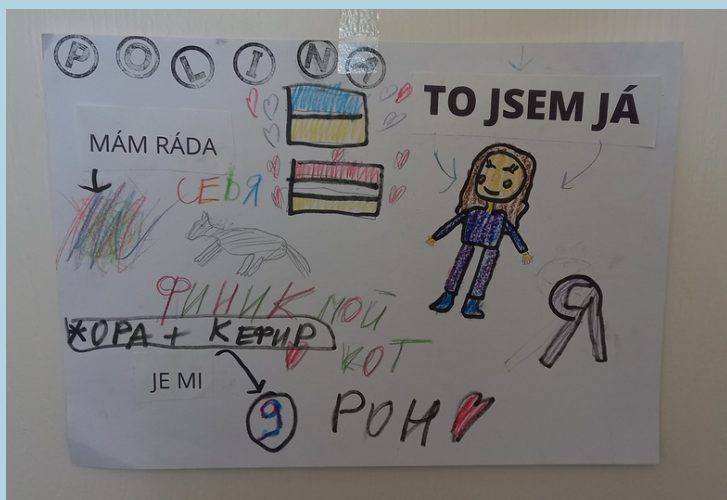 POLINA
TO JSEM JÁ
MÁM RÁDA
СЕБЯ
ФИНИК МОЙ
КОТ
ЖОРА + КЕФИР
JE MI
9
РОН
Я